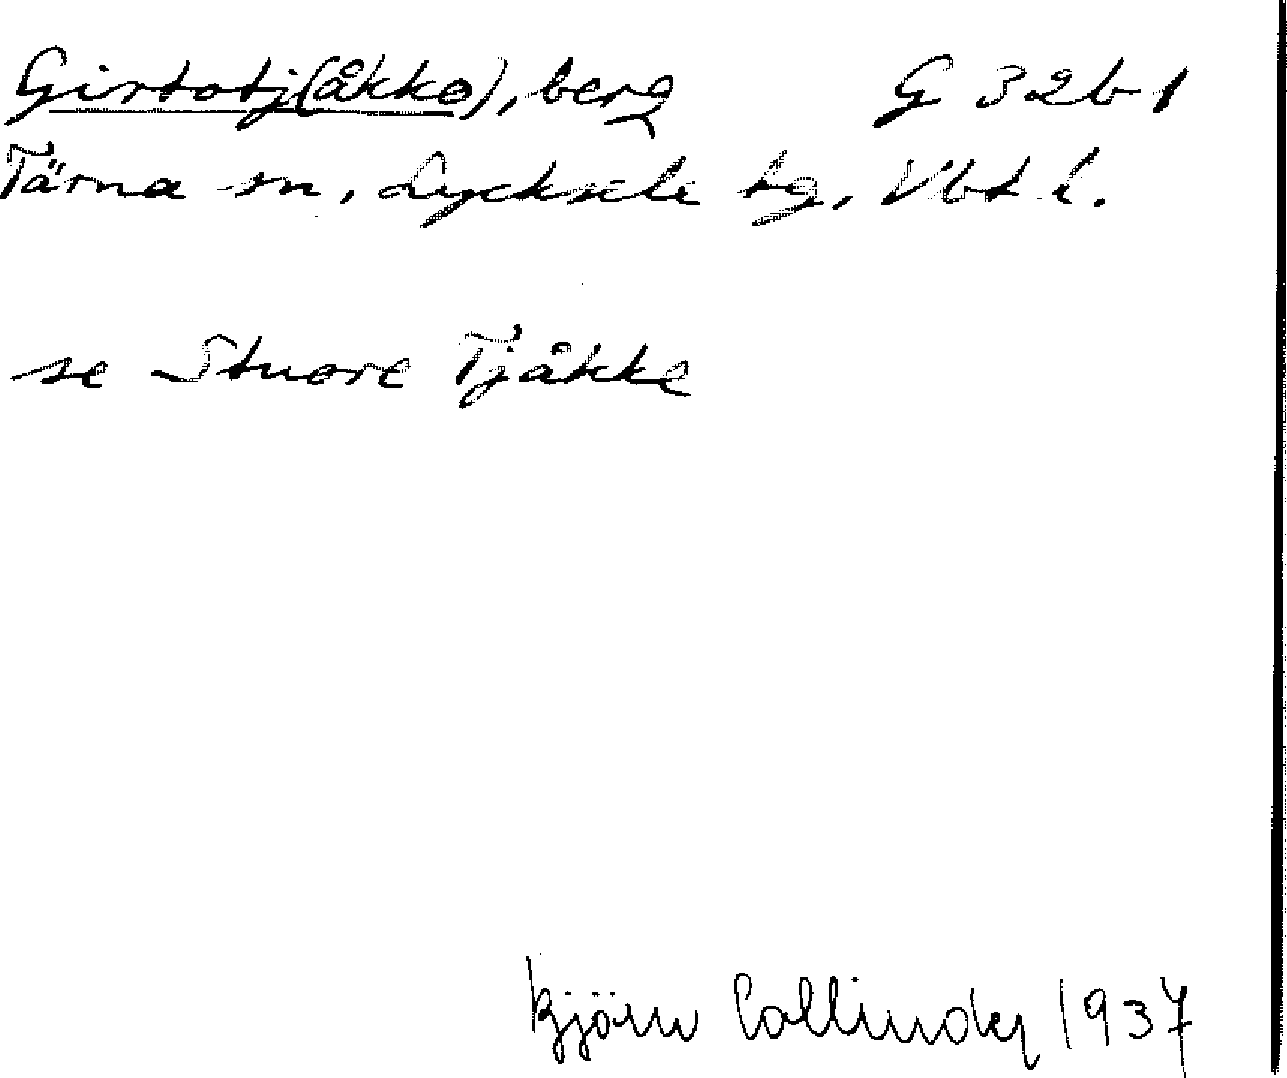 Girtotj(åkko), berg G 32b1
Tärna sn, Lycksele lg, Vbt l.
se Stuore Tjåkke
Björn Collinder 1937